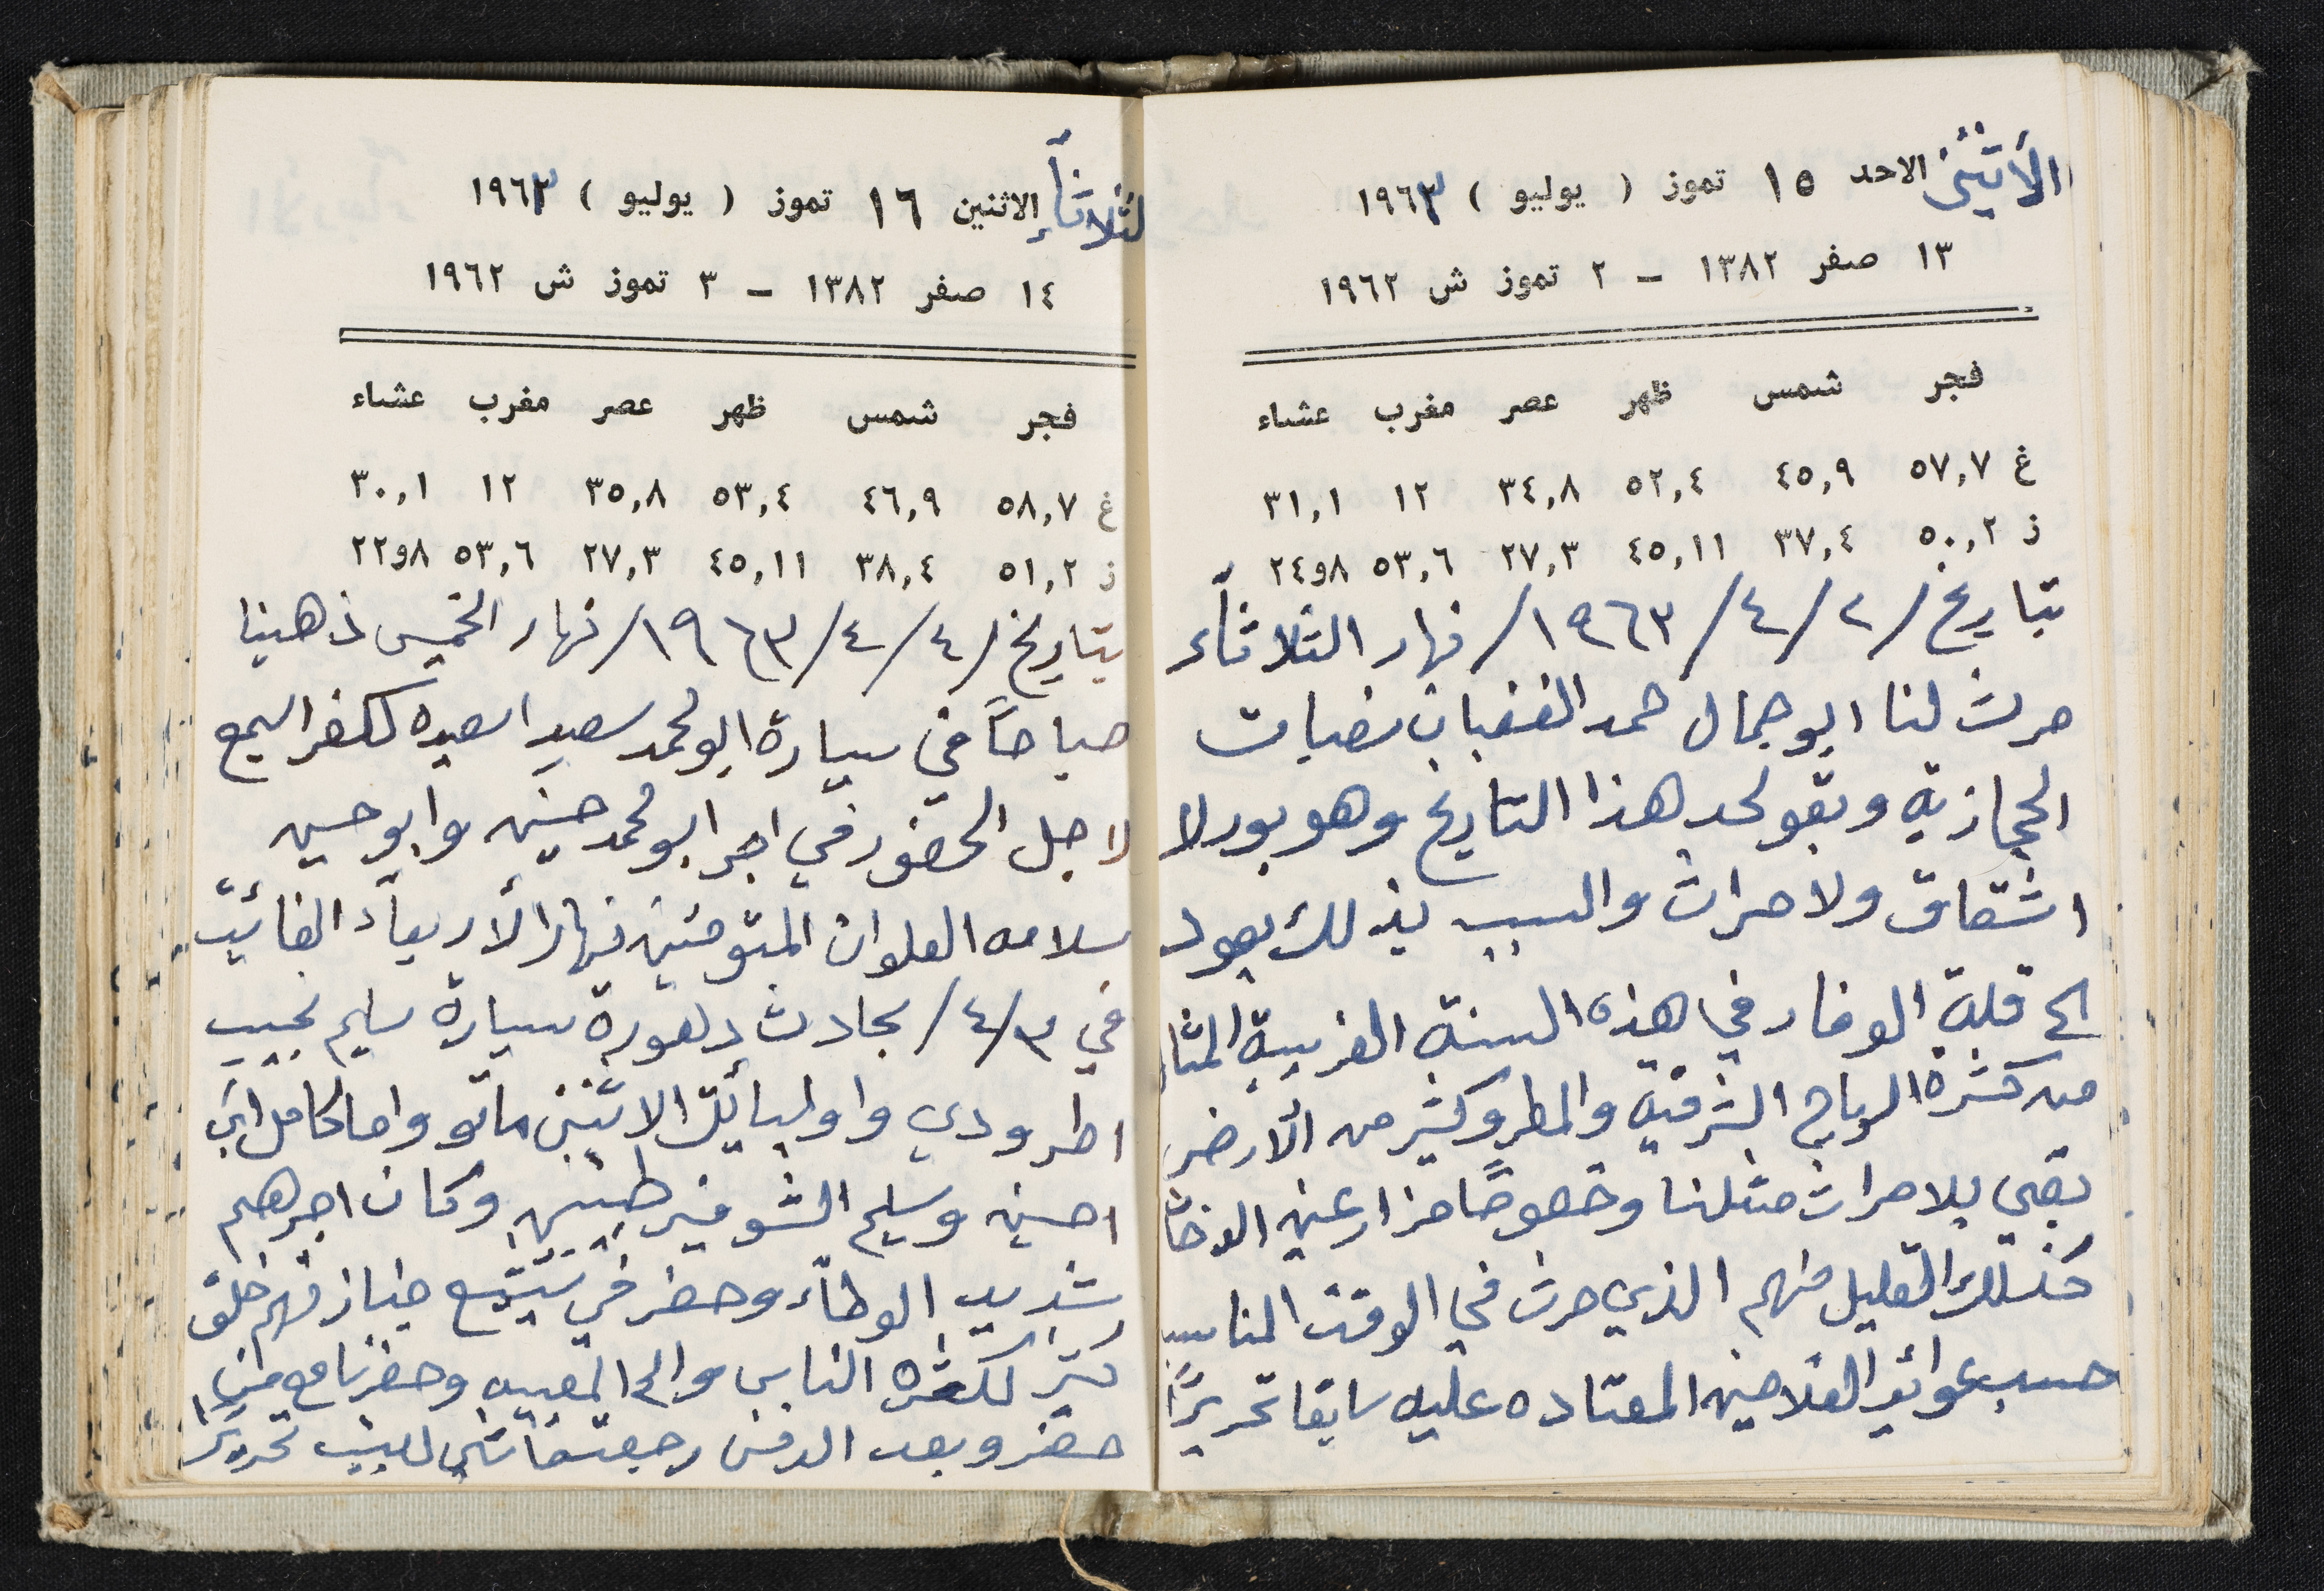 الأثنين الاحد ١٥ تموز ( يوليو ) ١٩٦٣
١٣ صفر ١٣٨٢ – ٢ تموز ش ١٩٦٢
فجر شمس ظهر عصر مغرب عشاء
غ ٥٧,٧ ٤٥,٩ ٥٢,٤ ٣٤,٨ ١٢ ٣١,١
ز ٥٠,٢ ٣٧,٤ ٤٥,١١ ٢٧,٣ ٥٣,٦ ٨و٢٤
بتاريخ /٢/٤/١٩٦٣/ نهار الثلاثاء
حرث لنا ابو جمال حمد الغضبان نصبات
الحجازية وبقو لحد هذا التاريخ وهو بور لا
اشقاق ولا حراث والسبب بذلك يعود
الى قلة الوفار في هذه السنة الغريبة المثال
من كثرة الرياح الشرقية والمطر وكثير من الأرض
بقي بلا حراث مثلنا وخصوصًا مزارعين الدخان
كذلك القليل منهم الذي حرث في الوقت المناسب
حسب عوائد الفلاحين المعتاده عليه سابقا تحريرًا
الثلاثاء الاثنين ١٦ تموز ( يوليو ) ١٩٦٣
١٤ صفر ١٣٨٢ – ٣ تموز ش ١٩٦٢
فجر شمس ظهر عصر مغرب عشاء
غ ٥٨,٧ ٤٦,٩ ٥٣,٤ ٣٥,٨ ١٢ ٣٠,١
ز ٥١,٢ ٣٨,٤ ٤٥,١١ ٢٧,٣ ٥٣,٦ ٨و٢٢
بتاريخ /٤/٤/١٩٦٣/ نهار الخميس ذهبنا
صباحًا في سيارة ابو محمد سعيد اسعيده لكفر
لاجل الحضور في اجر ابو محمد حسين وابو حسين
سلامه العلوان المتوفين نهار الأربعاء الفائت
في ٣/٤/ بحادث دهورة سيارة سليم نجيب
اطرودي واوليائك الاثنين ماتو واما كامل ابي
احسين وسليم الشوفير طيبين وكان اجرهم
شديد الوطاء وحضر في تشييع جنازتهم خلق
كثير لكثرة الناس والى المغيب وحضرنا مع من
حضر وبعد الدفن رجعت ماشي لعبيت تحريرًا